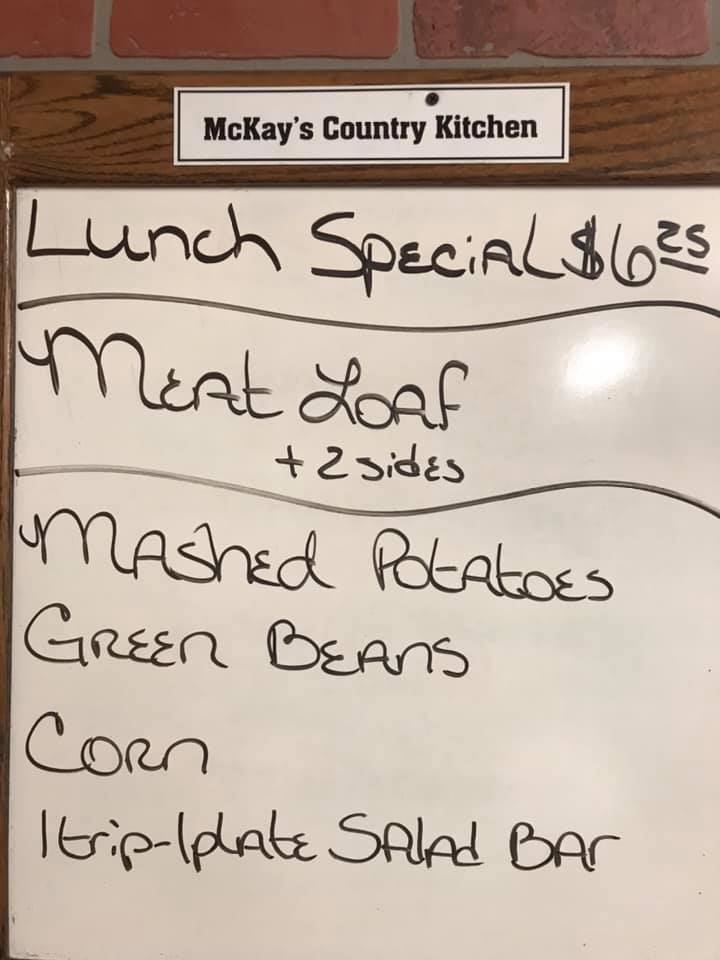 McKay's Country Kitchen
Lunch Special $6 25
Meat Loaf
+ 2 sides
Mashed Potatoes
Green Beans
Corn
1 trip-1 plate Salad Bar